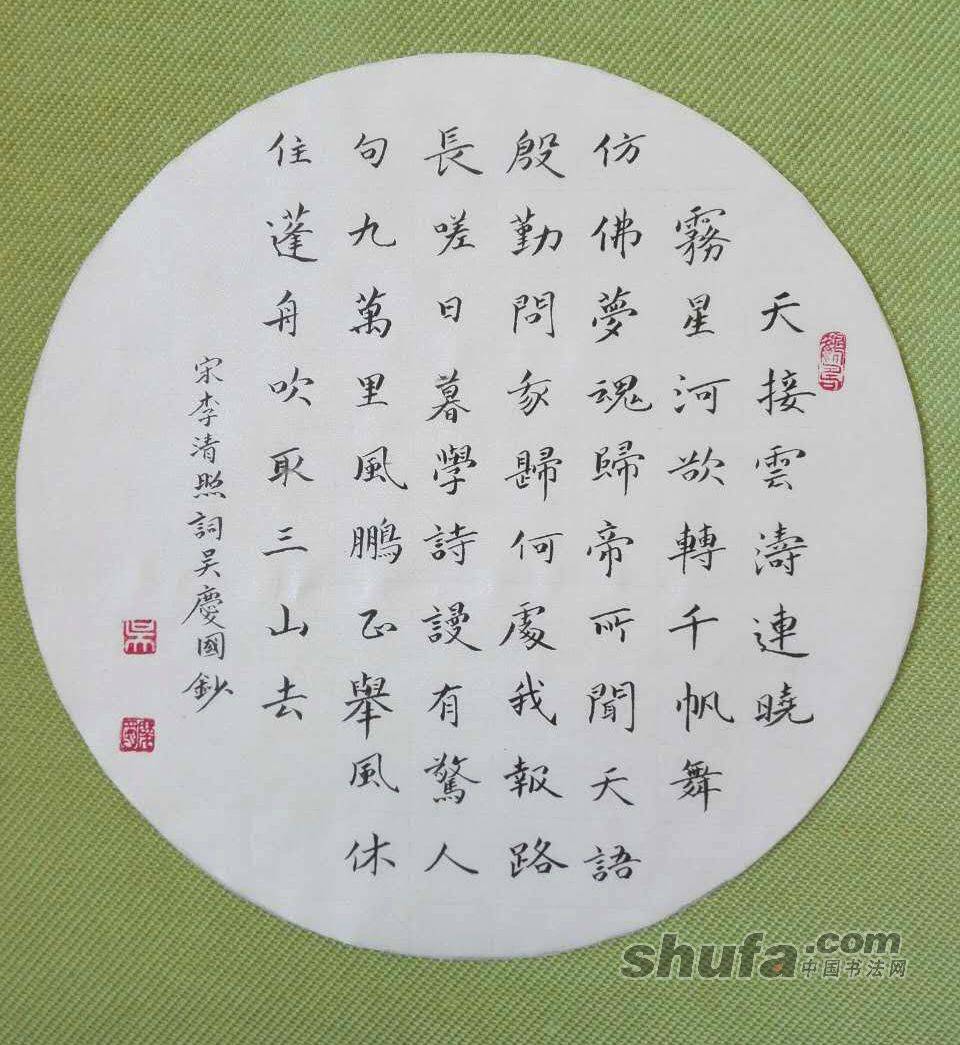 天接雲濤連曉
霧星河欲轉千帆舞
仿佛夢魂歸帝所聞天語
殷勤問我歸何處我報路
長嗟日暮學詩謾有驚人
句九萬里風鵬正舉風休
住蓬舟吹取三山去
宋李清照詞吴慶國鈔
吴
慶國
shufa.com
中国书法网